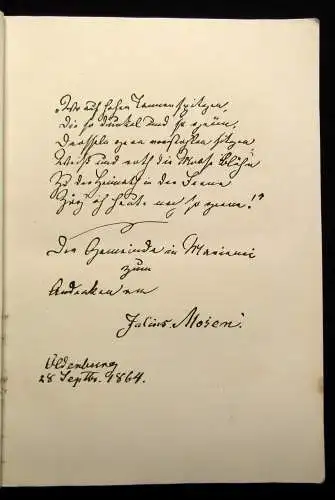 „Wo auf hohen Tannenspitzen,
Die so dunkel und so grün,
Drosseln gern verstohlen sitzen,
Weiß und roth die Moose blühn
Zu der Heimath in der Ferne
Zög' ich heute noch so gerne!"
Der Gemeinde in Marienei
zum
Andenken von
Julius Mosen.
Oldenburg
28 Septbr. 1864.